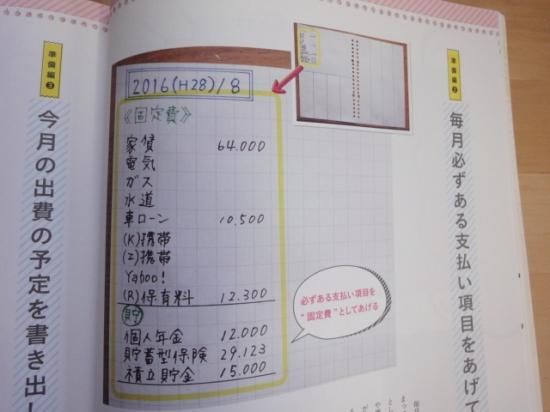 準備編②
毎月必ずある支払い項目をあげて
2016(H28)/8
《固定費》
家賃 64.000
電気
ガス
水道
車ローン 10.500
(K)携帯
(I)携帯
Yahoo!
(R)保育料 12.300
貯
個人年金 12.000
貯蓄型保険 29.123
積立貯金 15.000
必ずある支払い項目を
"固定費"としてあげる
準備編③
今月の出費の予定を書き出し